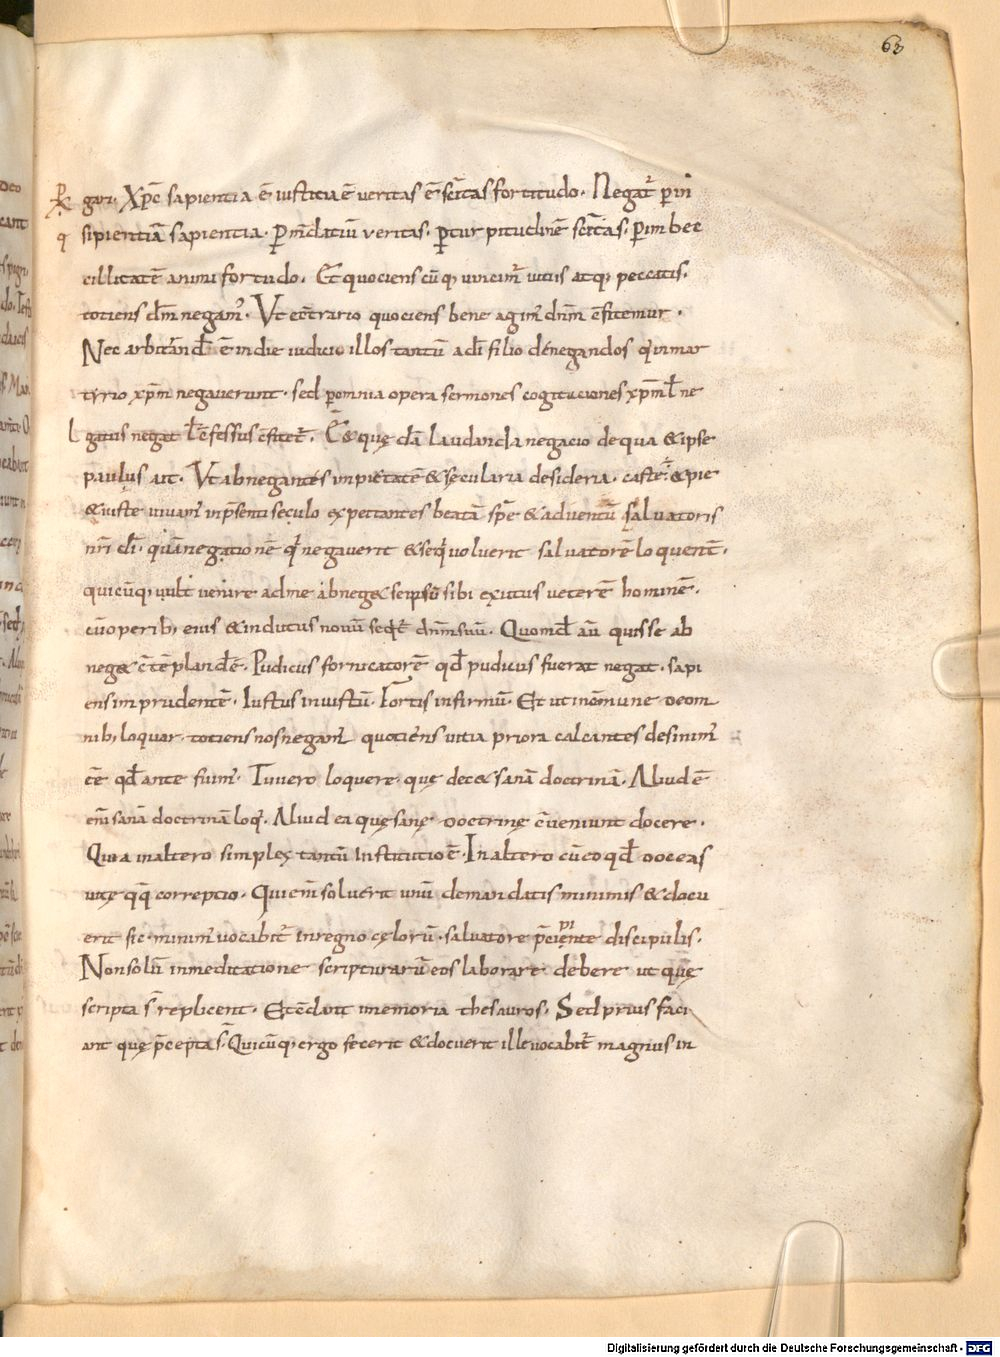 63
gari. Xp̅c sapientia ē iusticia ē veritas ē sc̅itas fortitudo. Negat̉ p̱ in
sipientiā sapientia. P̱ m̅daciū veritas. p̱ turpitudinē sc̅itas. P̱ imbec
cillitatē animi fortudo. Et quociens cū q; vincim̉ vitiis atq; peccatis.
totiens dm̅ negam̉. Ut ec̅trario quociens bene agim̉ dn̅m c̅fitemur.
Nec arbitrand̄ ē in die iudicii illos tantū a di̅ filio denegandos qui in mar
tyrio xp̅m negaverunt. sed p̱ omnia opera sermones cogitaciones xp̅m ł ne
gatus negat ł c̅fessus c̅fitet̉. Est quędā laudanda negacio de qua & ipse
paulus ait. Ut abnegantes impietatē & sęcularia desideria. caste & pie
& iuste vivam̉ in p̅senti sęculo expectantes beatā spē & adventū salvatoris
nr̅i di̅. quā negationē qui negaverit & sequi voluerit salvatorē loquentē.
quicūq; vult venire ad me abneg& seipsū sibi exutus veterē hominē.
cū operib; eius & indutus novū sequit̉ dn̅m suū. Quomd̄ aū quis se ab
neg& c̅tēplandē. Pudicus fornicatorē qd̄ pudicus fuerat negat. sapi
ens imprudentē. Iustus iniustū. Fortis infirmū. Et ut in c̅mune de om
nib; loquar. totiens nos negam̉ quotiens vitia priora calcantes desinim̉
ēē qd̄ ante fuim̉. Tu vero loquere quę dec& sanā doctrinā. Aliud ē
eni̅ sanā doctrinā loqi. Aliud ea quę sanę doctrinę c̅veniunt docere.
Quia in altero simplex tantū institutio ē. In altero cū eo qd̄ doceas
vitę qq̄ correptio. Qui eni̅ solverit unū de mandatis minimis & docu
erit sic. minim̉ vocabit̉ in regno cęlorū. salvatore p̅cipiente discipulis.
Non solū in meditatione scripturarū eos laborare debere ut quę
scripta s̅ replicent. Et c̅dant memoria thesauros. Sed prius faci
ant quę p̅cepta s̅. Quicūq; ergo fecerit & docuerit ille vocabit̉ magnus in
Digitalisierung gefördert durch die Deutsche Forschungsgemeinschaft - DFG